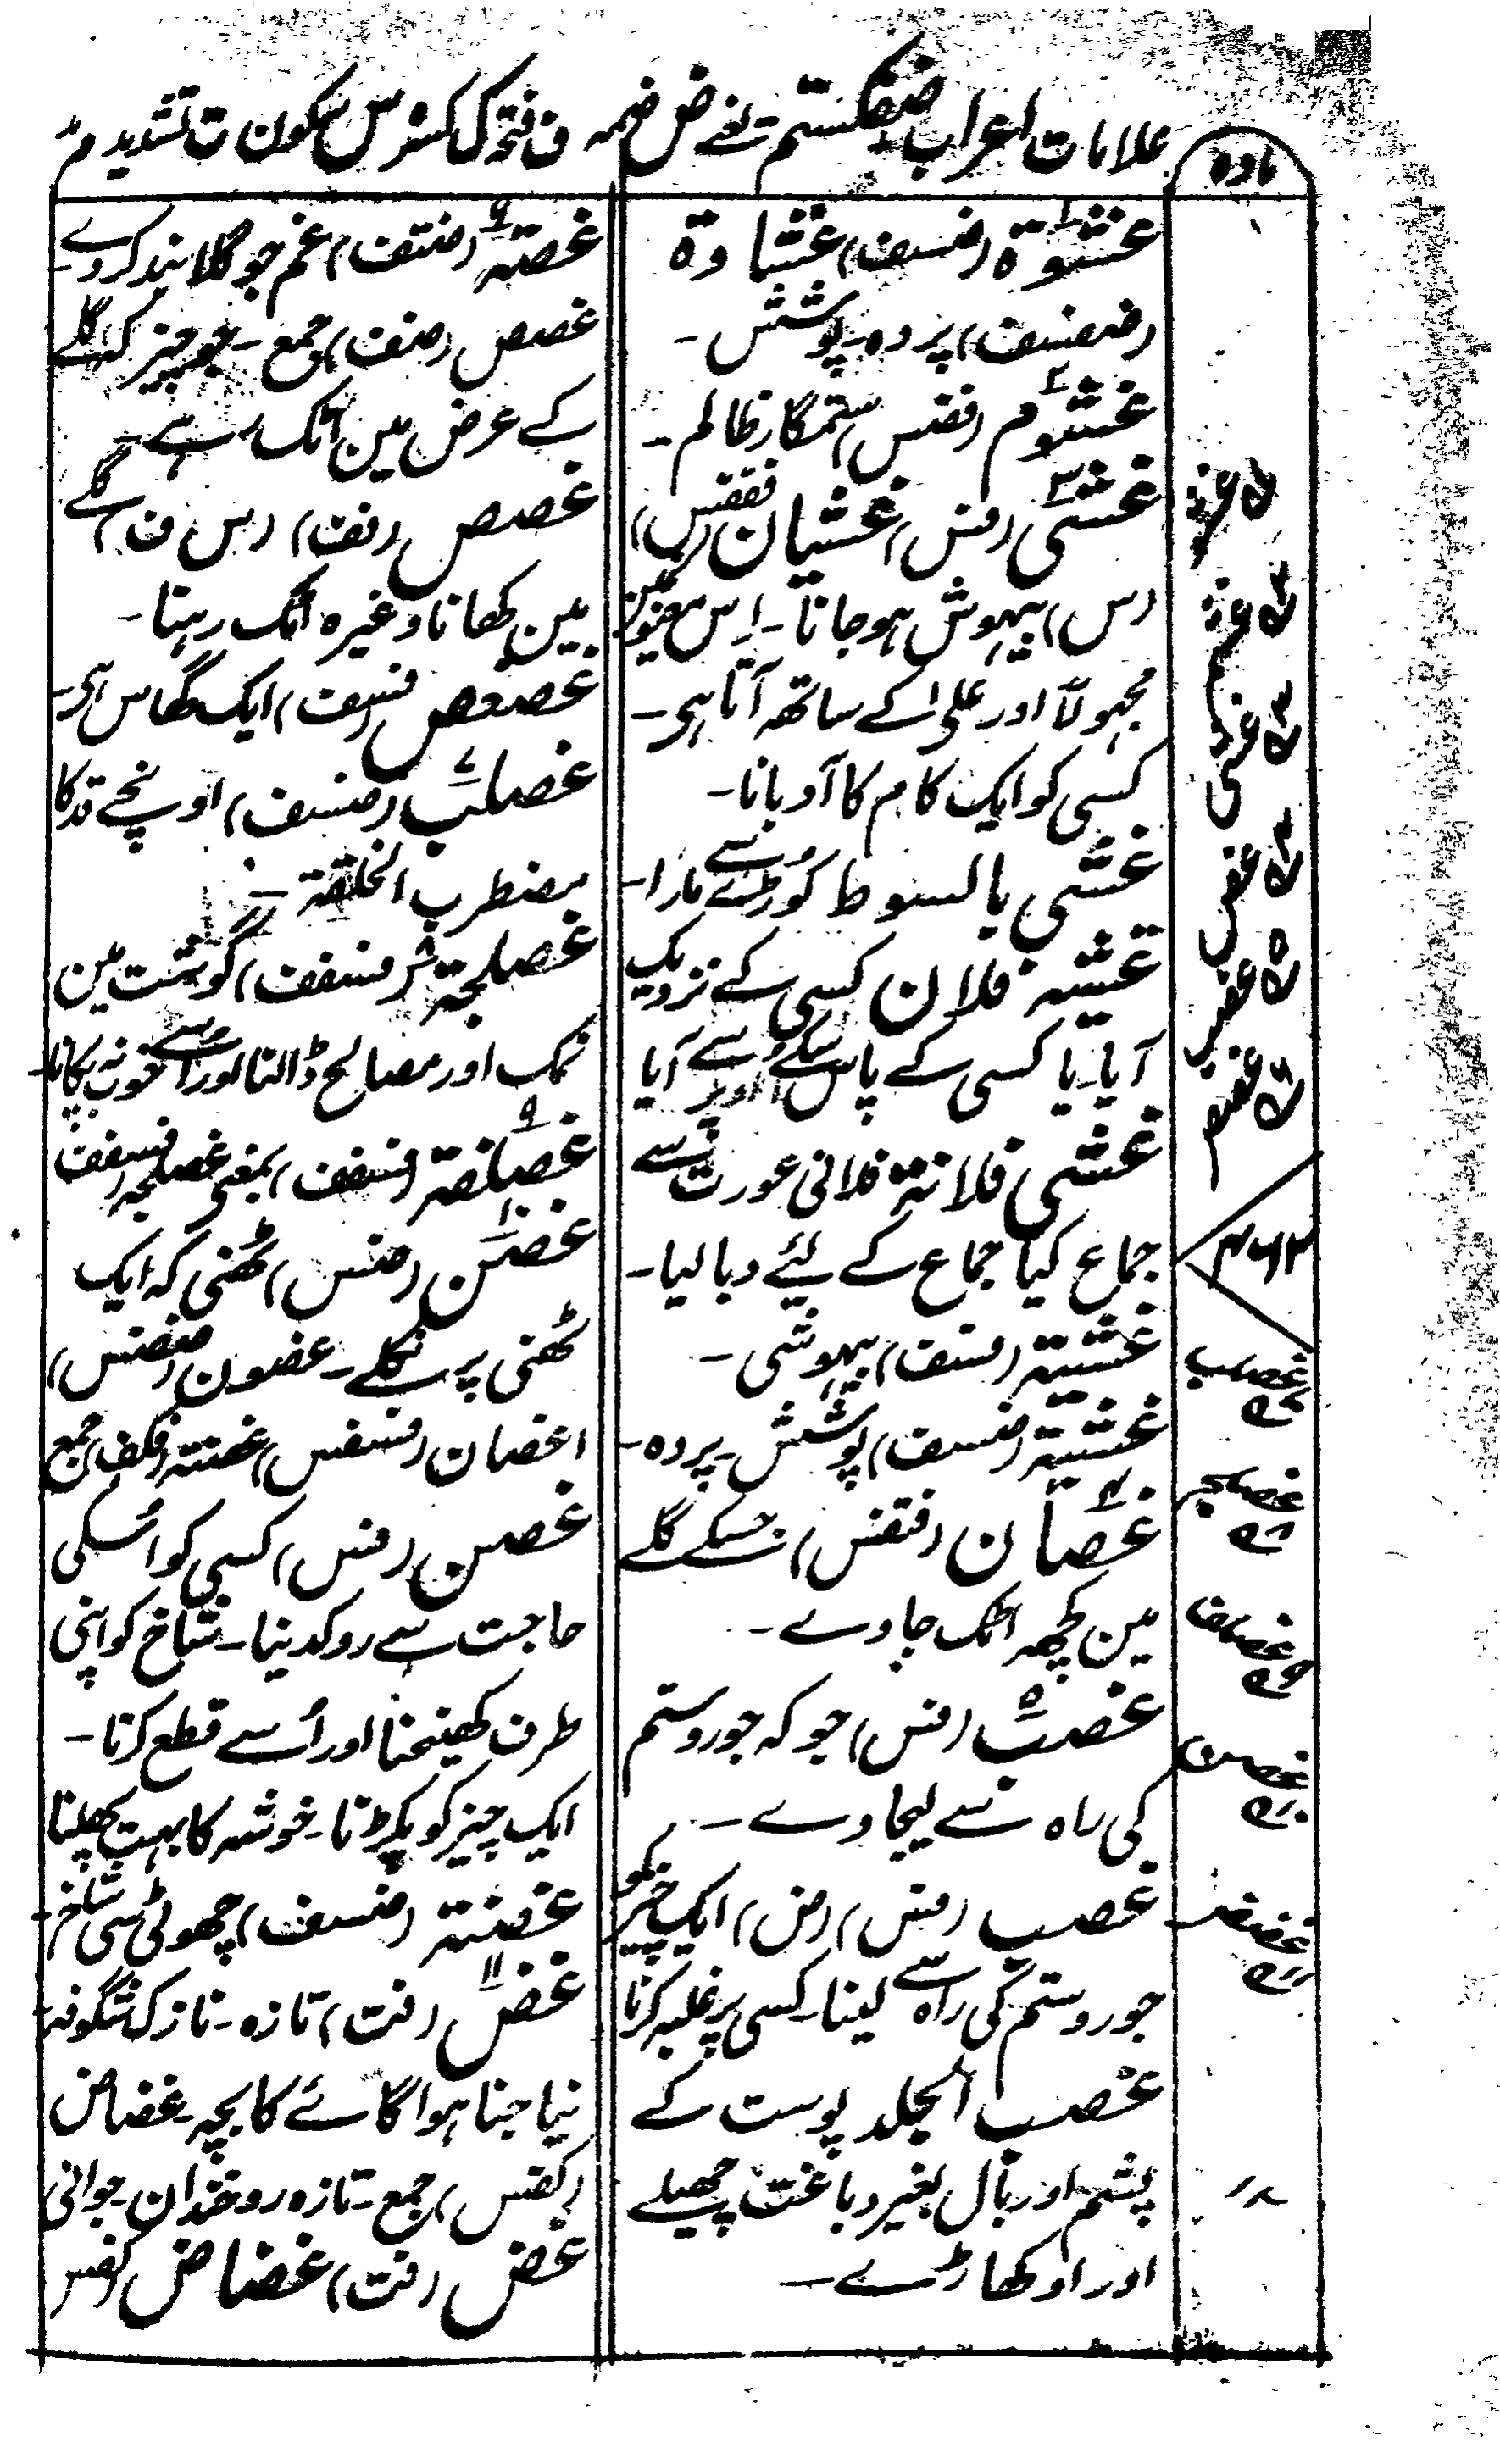 علامات اعراب ضفکستم یعنے ض ضمہ ف فتحہ ک کسرہ س سکون ت تشدید م
مادہ
غشوۃ (ضسف) غشاوۃ
(ضفسف) پردہ۔ پوشش۔
غشوم (فضس) ستمگار ظالم۔
غشی (فس) غشیان (ففقس)
(س) بیہوش ہوجانا۔ اِس معنیون مین
مجہولاً اور علیٰ کے ساتھ آتا ہی۔
کسی کو ایک کام کا آدبانا۔
غشی بالسوط کوڑے سے مارا۔
غشیہ فلان کسی کے نزدیک
آیا۔ یا کسی کے پاس اوپر سے آیا
غشی فلانۃ فلانی عورت سے
جماع کیا جماع کے لیئے دبالیا۔
غشیۃ (فسف) بیہوشی۔
غشیۃ (ضسف) پوشش۔ پردہ۔
غصان (فتفس) جسکے گلے
مین کچھہ اٹک جاوے۔
غصب (فس) جو کہ جور و ستم
کی راہ سے لیجاوے۔
غصب (فس) (ض) ایک چیز کو
جور و ستم کی راہ سے لینا۔ کسی پر غلبہ کرنا
غصب الجلد پوست کے
پشم اور بال بغیر دباغت چھیلے
اور اوکھاڑے۔
غصۃ (ضتف) غم جو گلا بند کردے۔
غصص (ضف) جمع۔ جو چیز کہ گلے
کے عرض مین اٹک رہے۔
غصص (فف) (س ف) گلے
مین کھانا وغیرہ اٹک رہنا۔
ایک گھاس ہی۔
غصلب (ضسف) اونچے قد کا
مضطرب الخلقۃ۔
غصلجۃ (فسفف) گوشت مین
نمک اور مصالح ڈالنا اور اُسے خوب نہ پکانا۔
(فسفف) بمعنی غصلجہ (فسفف)
غصن (ضس) ٹھنی کہ ایک
ٹھنی پر نکلے۔ غصون (ضضس)
اغصان (فسفس) غصنۃ جمع
غصن (فس) کسی کو اُسکی
حاجت سے روکدینا۔ شاخ کو اپنی
طرف کھینچنا اور اُسے قطع کرنا۔
ایک چیز کو پکڑنا۔ خوشہ کا بہت پھلنا
غصنۃ (ضسف) چھوٹی سی شاخ۔
غض (فت) تازہ۔ نازک شگوفہ۔
نیا جنا ہوا گائے کا بچہ۔ غضاض
(کفس) جمع۔ تازہ رو خندان۔ جوانی
غض (فت) غضاض (کفس
غشم
غشی
غصص
غصب
۴۶۱۲
غصلب
غصلج
غصن
غضض